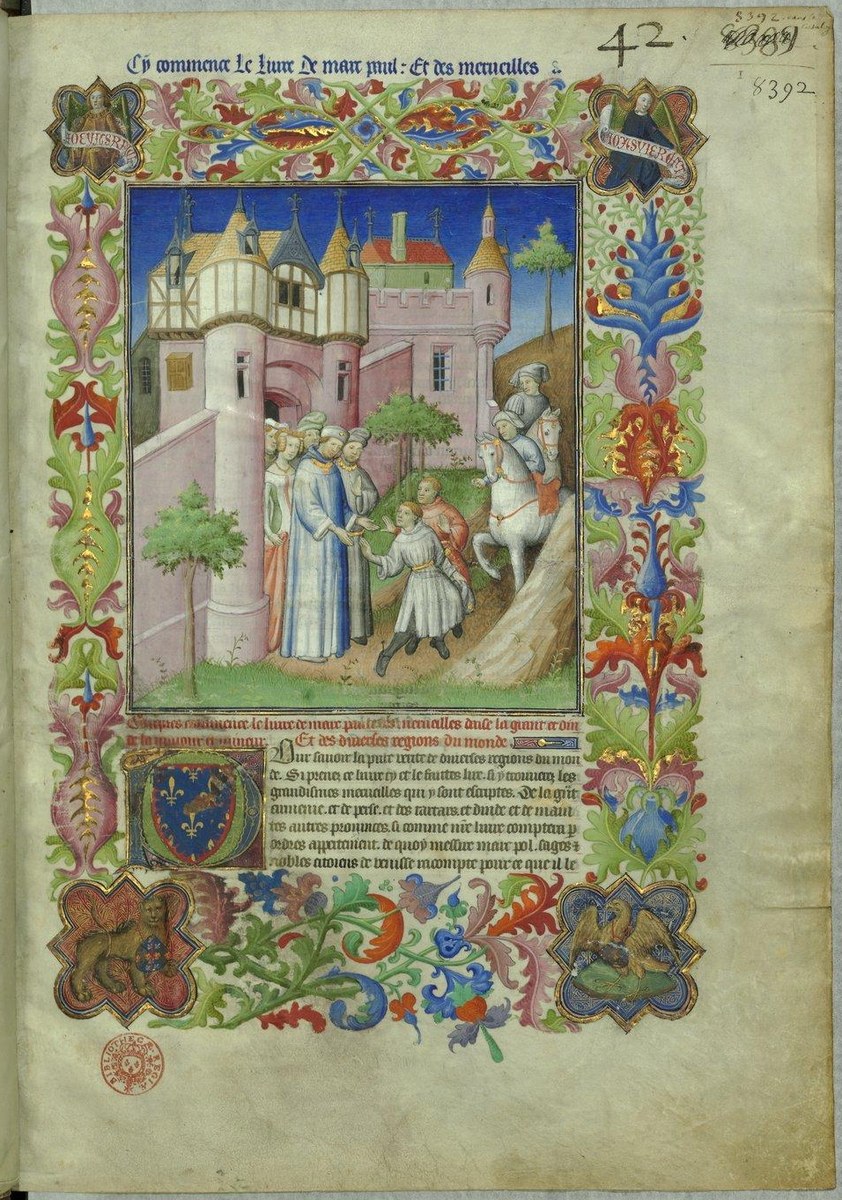 42.
8392
8392
Cy commence Le Liure De marc paul : Et des merueilles
le liure de marc paul
Et des diuerses regions du monde
Our sauoir la pure verite de diuerses regions du mon
de. Si prenez ce liure cy et le faittes lire. si y trouuerez les
grandismes merueilles qui y sont escriptes. De la grāt
ermenie. et de perse. et des tartars. et dinde et de main
tes autres prouinces. si comme nr̄e liure comptera p
ordres appertement. de quoy messire marc pol. sages
nobles citoiens de venisse racompte pour ce que il le
BIBLIOTHECÆ REGIÆ